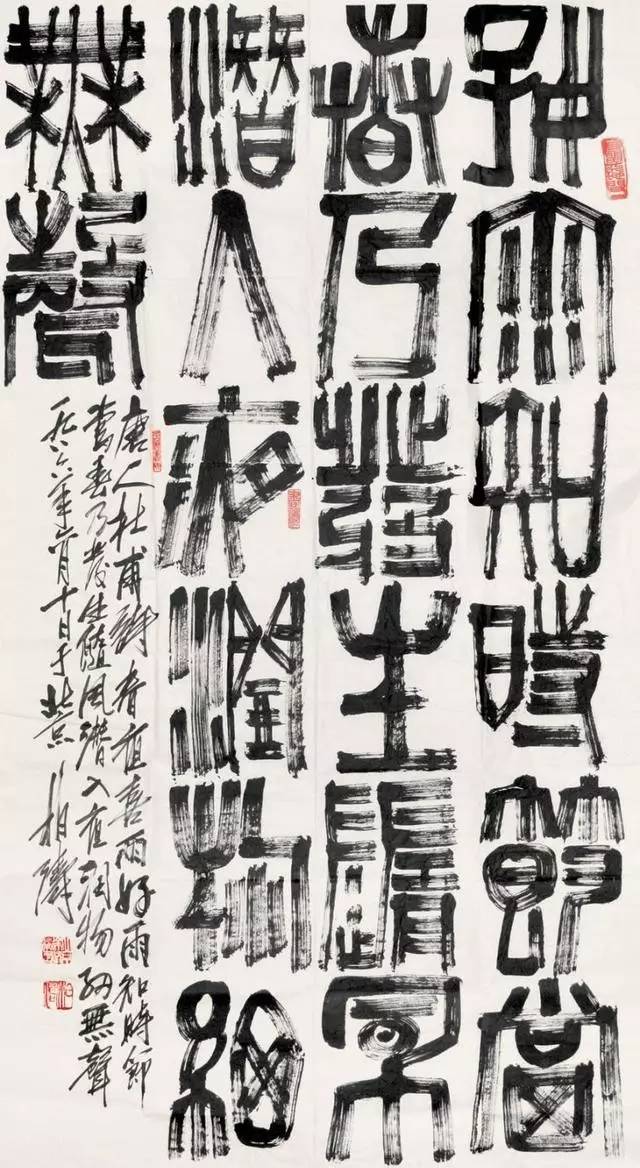 好雨知時節當
春乃發生隨風
潛入夜潤物細
無聲
唐人杜甫詩春夜喜雨好雨知時節
當春乃發生隨風潛入夜潤物細無聲
年月十日于北京